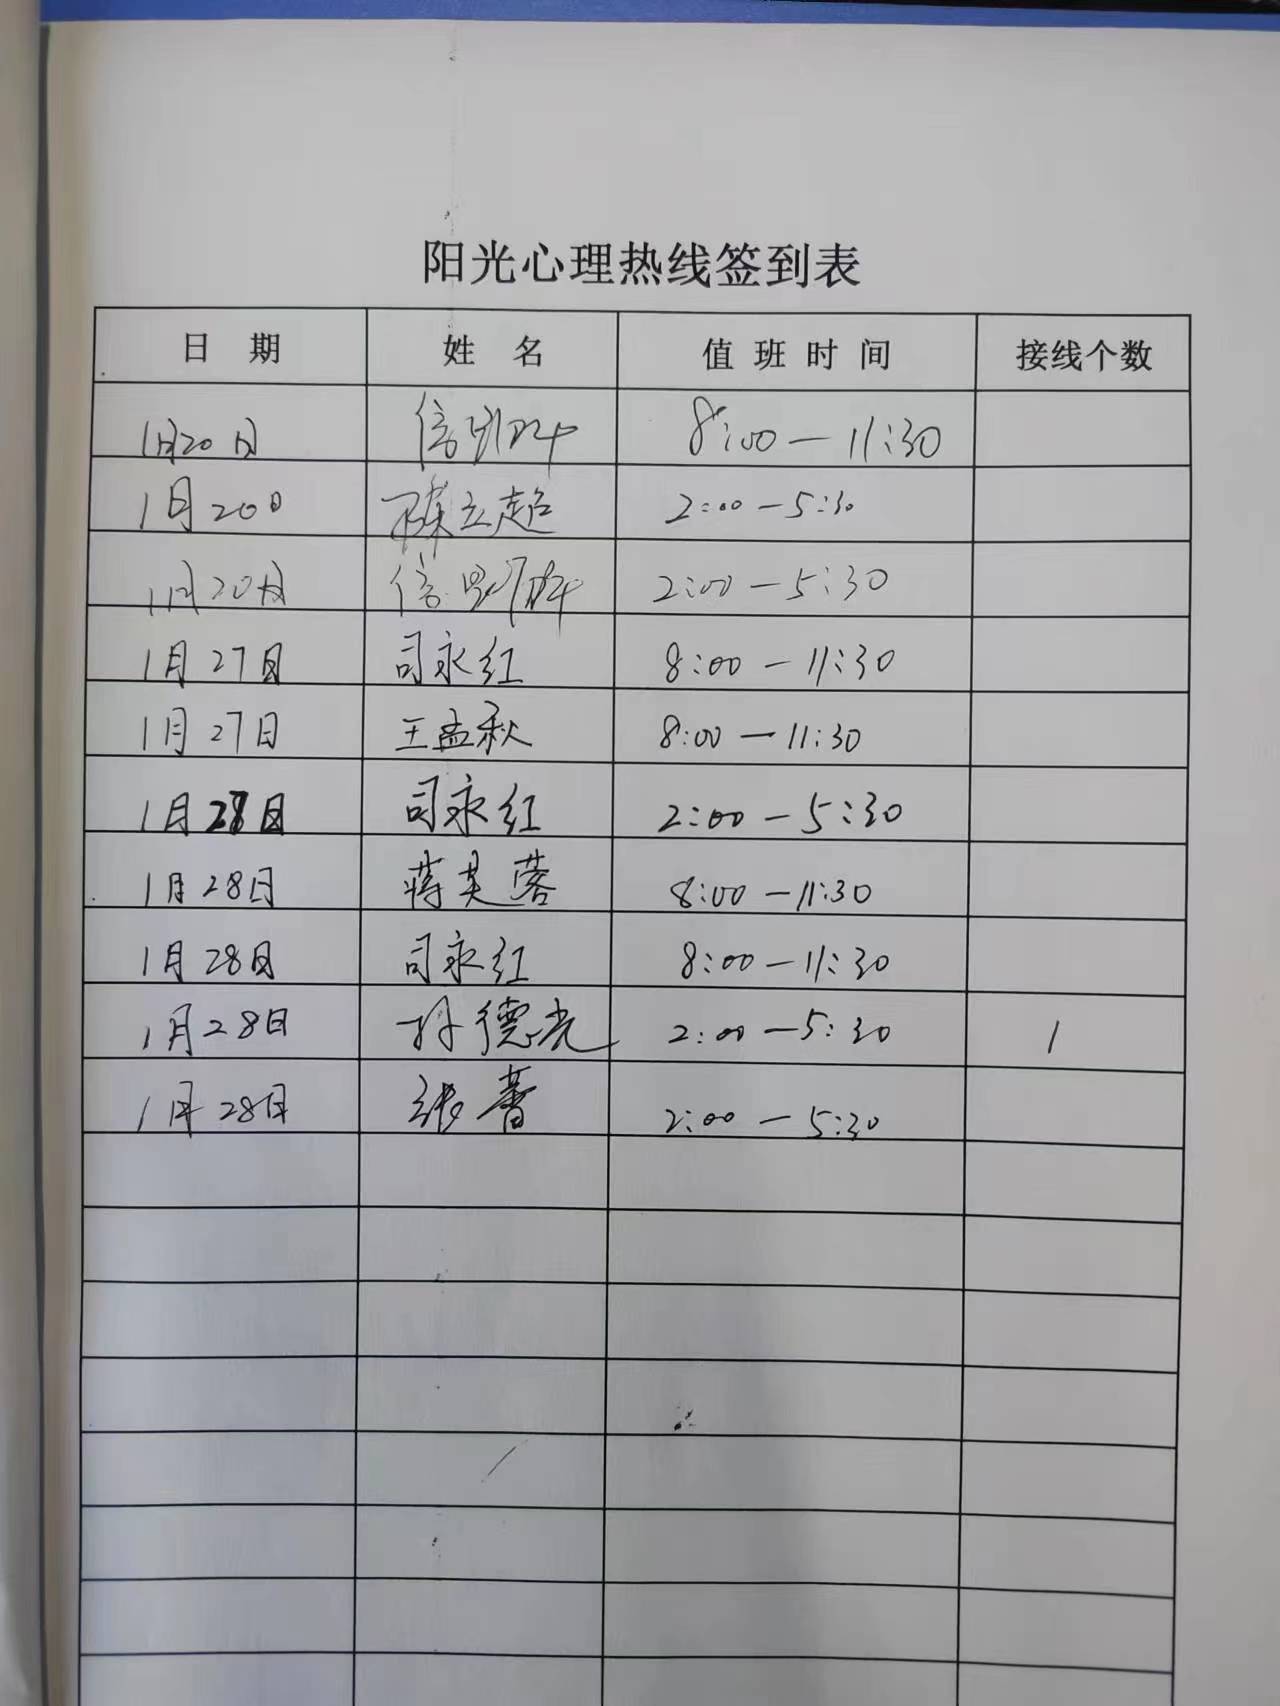 阳光心理热线签到表
日 期 姓 名 值 班 时 间 接线个数
1月20日 信 8:00-11:30
1月20日 陈立超 2:00-5:30
1月20日 信 2:00-5:30
1月27日 司永红 8:00-11:30
1月27日 王孟秋 8:00-11:30
1月28日 司永红 2:00-5:30
1月28日 蒋芙蓉 8:00-11:30
1月28日 司永红 8:00-11:30
1月28日 孙德光 2:00-5:30 1
1月28日 张 2:00-5:30